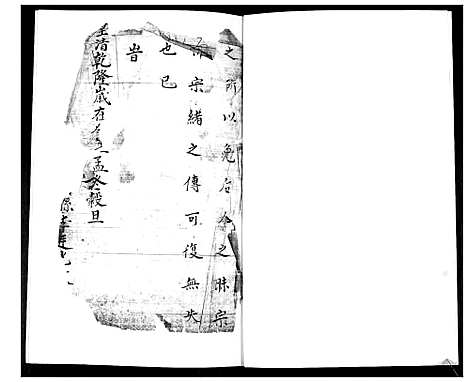 之所以兔后今之昧宗
宗緒之傳可復無失
也已
旹
清乾隆歲在孟冬穀旦